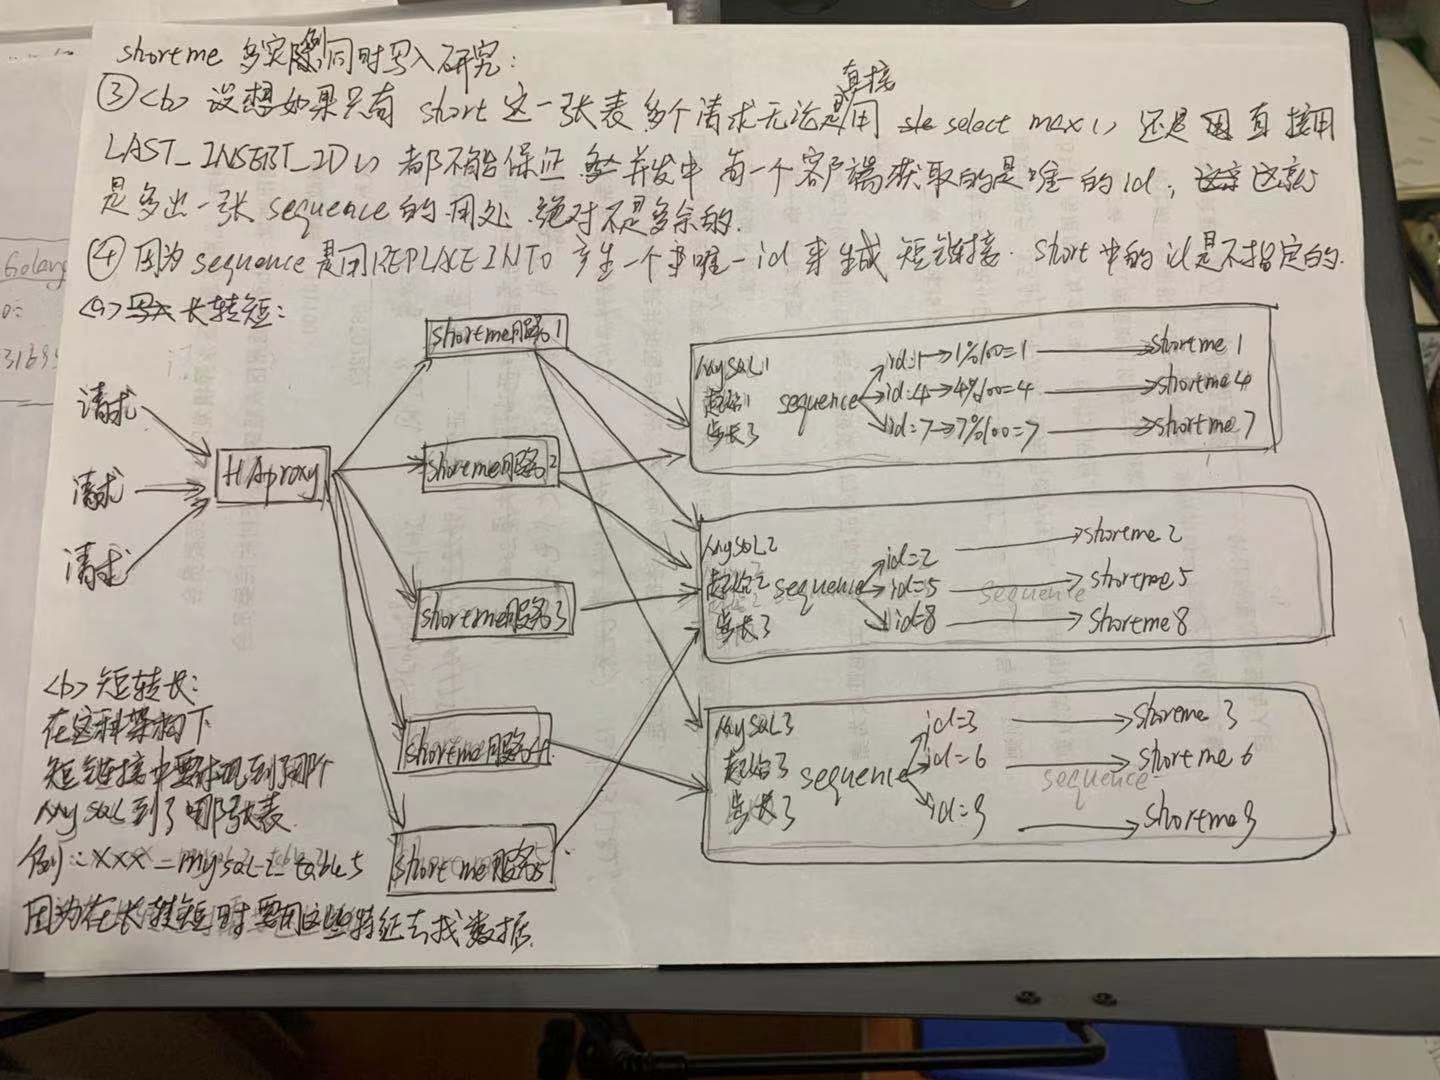 shortme 多实例同时写入研究:
直接
③<b> 设想如果只有 short 这一张表 多个请求无论是用 select max() 还是 直接用
LAST_INSERT_ID() 都不能保证 并发中 每一个客户端获取的是唯一的id, 这就
是多出一张 sequence 的用处. 绝对不是多余的.
④ 因为 sequence 是用REPLACE INTO 产生一个唯一id 来生成 短链接. short中的id是不指定的.
<a> 长转短:
请求
请求
请求
HAproxy
shortme服务1
shortme服务2
shortme服务3
shortme服务4
shortme服务5
MySQL1
起始1
步长3
sequence
id=1→1%100=1 → shortme 1
id=4→4%100=4 → shortme 4
id=7→7%100=7 → shortme 7
MySQL2
起始2
步长3
sequence
id=2 → shortme 2
id=5 → shortme 5
id=8 → shortme 8
MySQL3
起始3
步长3
sequence
id=3 → shortme 3
id=6 → shortme 6
id=9 → shortme 9
<b> 短转长:
在这种架构下
短链接中要体现到了哪个
MySQL 到了哪张表.
例: XXX = mysql-2-table5
因为在长转短时要用这些特征去找数据.
Golang